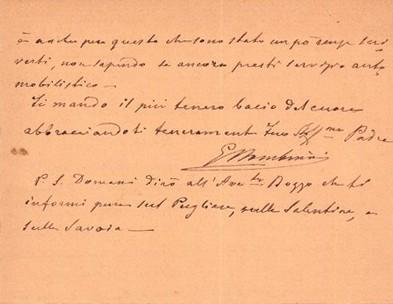 è anche per questo che sono stato un pò senza scri-
verti, non sapendo se ancora presti servizio auto
mobilistico —
Ti mando il più tenero bacio del cuore
abbracciandoti teneramente tuo Aff.mo Padre
P.S. Domani dirò all'Avv.to Bozzo che ti
informi pure sul Pugliese, sulle Salentine, e
sulle Savoia —